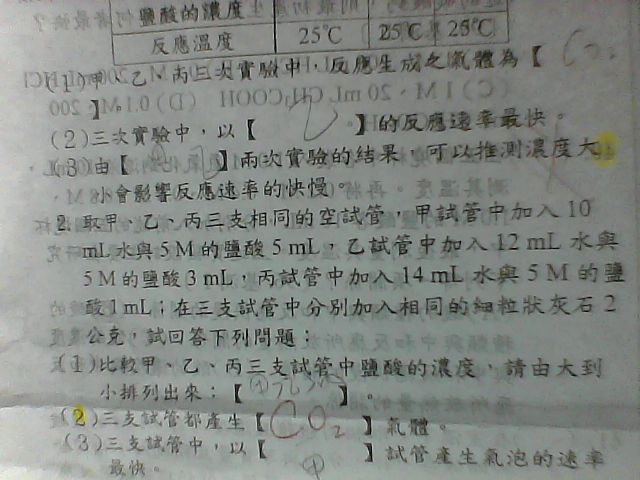 鹽酸的濃度
反應溫度 25℃ 25℃ 25℃
乙、丙三次實驗中，反應生成之氣體為【 CO₂
(2)三次實驗中，以【 】的反應速率最快。
(3)由【 】兩次實驗的結果，可以推測濃度大
小會影響反應速率的快慢。
2. 取甲、乙、丙三支相同的空試管，甲試管中加入 10
mL 水與 5 M 的鹽酸 5 mL，乙試管中加入 12 mL 水與
5 M 的鹽酸 3 mL，丙試管中加入 14 mL 水與 5 M 的鹽
酸 1 mL；在三支試管中分別加入相同的細粒狀灰石 2
公克，試回答下列問題：
(1)比較甲、乙、丙三支試管中鹽酸的濃度，請由大到
小排列出來：【甲>乙>丙】。
(2)三支試管都產生【 CO₂ 】氣體。
(3)三支試管中，以【 甲 】試管產生氣泡的速率
最快。